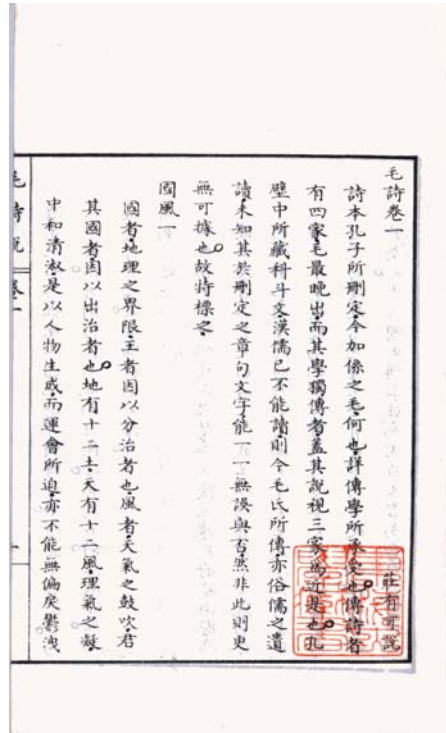 毛詩卷一 莊有可說
詩本孔子所刪定、今加係之毛、何也、詳傳學所承受也。傳詩者
有四家、毛最晚出、而其學獨傳者、蓋其說視三家為近是也。孔
壁中所藏科斗文、漢儒已不能讀、則今毛氏所傳、亦俗儒之遺
讀、未知其於刪定之章句文字、能一一無誤與否、然非此則更
無可據也。故特標之、
國風一
國者、地理之界限、主者因以分治者也、風者、天氣之鼓吹、君
其國者因以出治者也。地有十二土、天有十二風、理氣之
中和清淑、是以人物生成、而運會所迫、亦不能無偏戾鬱洩
毛詩說 卷一 一